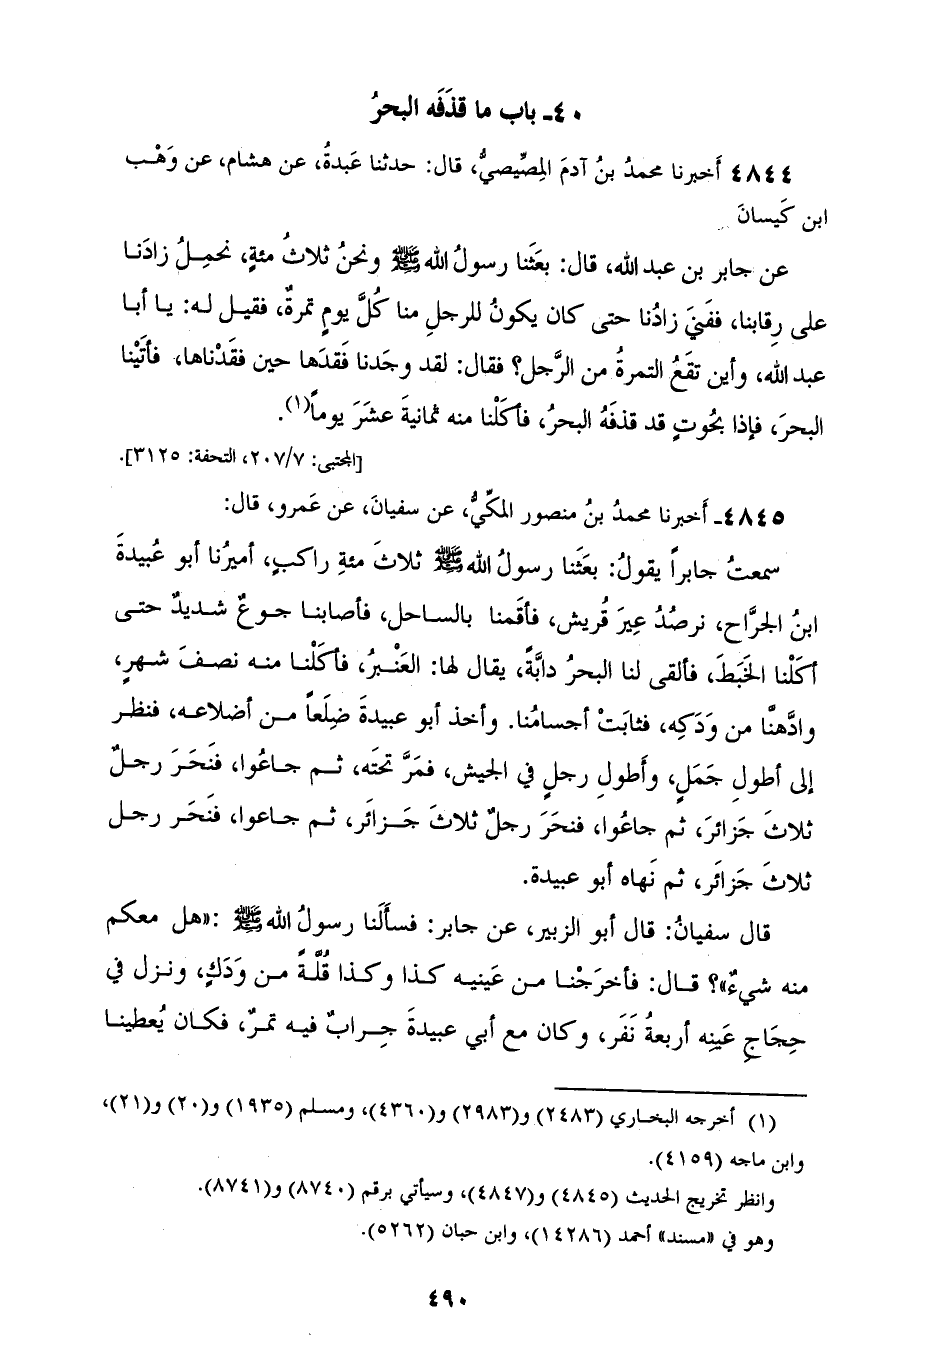 ٤٠ـ باب ما قذَفَه البحرُ
٤٨٤٤ أَخبرنا محمدُ بنُ آدمَ المِصِّيصيُّ، قال: حدثنا عَبدةُ، عن هشام، عن وَهْب
ابن كَيسانَ
عن جابر بن عبد الله، قال: بعَثَنا رسولُ الله ﷺ ونحنُ ثلاثُ مئةٍ، نحمِلُ زادَنا
على رِقابنا، ففَنيَ زادُنا حتى كان يكونُ للرجلِ منا كُلَّ يومٍ تمرةٌ، فقيل له: يا أبا
عبد الله، وأين تقَعُ التمرةُ من الرَّجل؟ فقال: لقد وجَدنا فَقدَها حين فقَدْناها، فأتَيْنا
البحرَ، فإذا بحُوتٍ قد قذفَهُ البحرُ، فأكَلْنا منه ثمانيةَ عشَرَ يوماً(١).
[المجتبى: ٢٠٧/٧، التحفة: ٣١٢٥].
٤٨٤٥ـ أَخبرنا محمدُ بنُ منصور المكِّيُّ، عن سفيانَ، عن عَمرو، قال:
سمعتُ جابراً يقولُ: بعَثَنا رسولُ الله ﷺ ثلاثَ مئةِ راكبٍ، أميرُنا أبو عُبيدةَ
ابنُ الجرَّاح، نرصُدُ عِيرَ قُريش، فأقَمنا بالساحل، فأصابنا جوعٌ شديدٌ حتى
أكَلْنا الخَبَطَ، فألقى لنا البحرُ دابَّةً، يقال لها: العَنْبرُ، فأكَلْنا منه نصفَ شهرٍ،
وادَّهنَّا من وَدَكِه، فثابَتْ أجسامُنا. وأخذ أبو عبيدةَ ضِلَعاً من أضلاعه، فنظر
إلى أطولِ جَمَلٍ، وأَطولِ رجلٍ في الجيش، فمَرَّ تحتَه، ثم جاعُوا، فنَحَرَ رجلٌ
ثلاثَ جَزائرَ، ثم جاعُوا، فنحَرَ رجلٌ ثلاثَ جَزائَر، ثم جاعوا، فنَحَر رجل
ثلاثَ جَزائَر، ثم نَهاه أبو عبيدة.
قال سفيانُ: قال أبو الزبير، عن جابر: فسأَلَنا رسولُ الله ﷺ: «هل معكم
منه شيءٌ»؟ قال: فأخرَجْنا من عَينيه كذا وكذا قُلَّةً من وَدَكٍ، ونزل في
حِجَاجِ عَينِه أربعةُ نَفَر، وكان مع أبي عبيدةَ جِرابٌ فيه تمرٌ، فكان يُعطينا
(١) أخرجه البخاري (٢٤٨٣) و(٢٩٨٣) و(٤٣٦٠)، ومسلم (١٩٣٥) و(٢٠) و(٢١)،
وابن ماجه (٤١٥٩).
وانظر تخريج الحديث (٤٨٤٥) و(٤٨٤٧)، وسيأتي برقم (٨٧٤٠) و(٨٧٤١).
وهو في «مسند» أحمد (١٤٢٨٦)، وابن حبان (٥٢٦٢).
٤٩٠